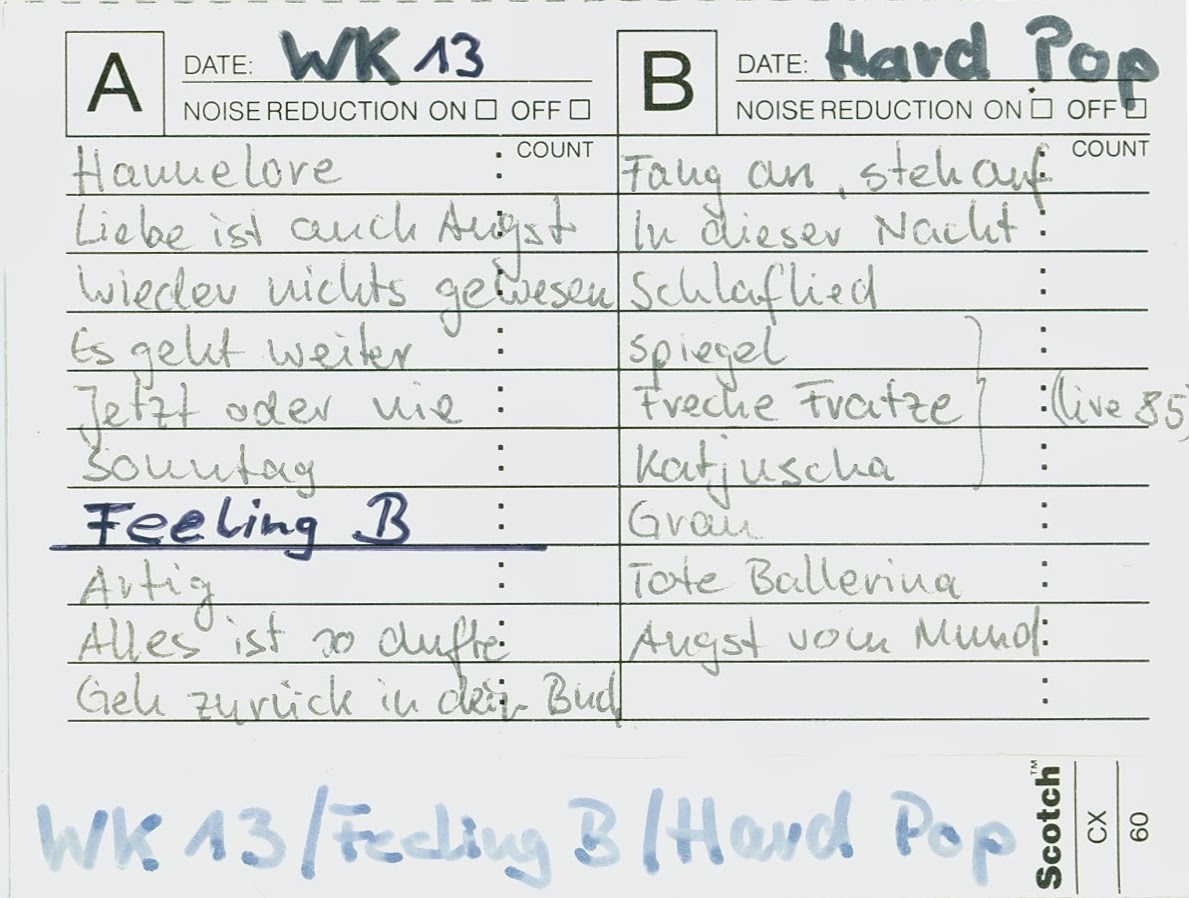 A DATE: WK 13
NOISE REDUCTION ON OFF
COUNT
Hannelore
Liebe ist auch Angst
Wieder nichts gewesen
Es geht weiter
Jetzt oder nie
Sonntag
Feeling B
Artig
Alles ist so dufte
Geh zurück in dein Bud
B DATE: Hard Pop
NOISE REDUCTION ON OFF
COUNT
Fang an, steh auf
In dieser Nacht
Schlaflied
Spiegel
Freche Fratze (live 85)
Katjuscha
Grau
Tote Ballerina
Angst vom Mund
WK 13/Feeling B/Hard Pop
Scotch™
CX
60